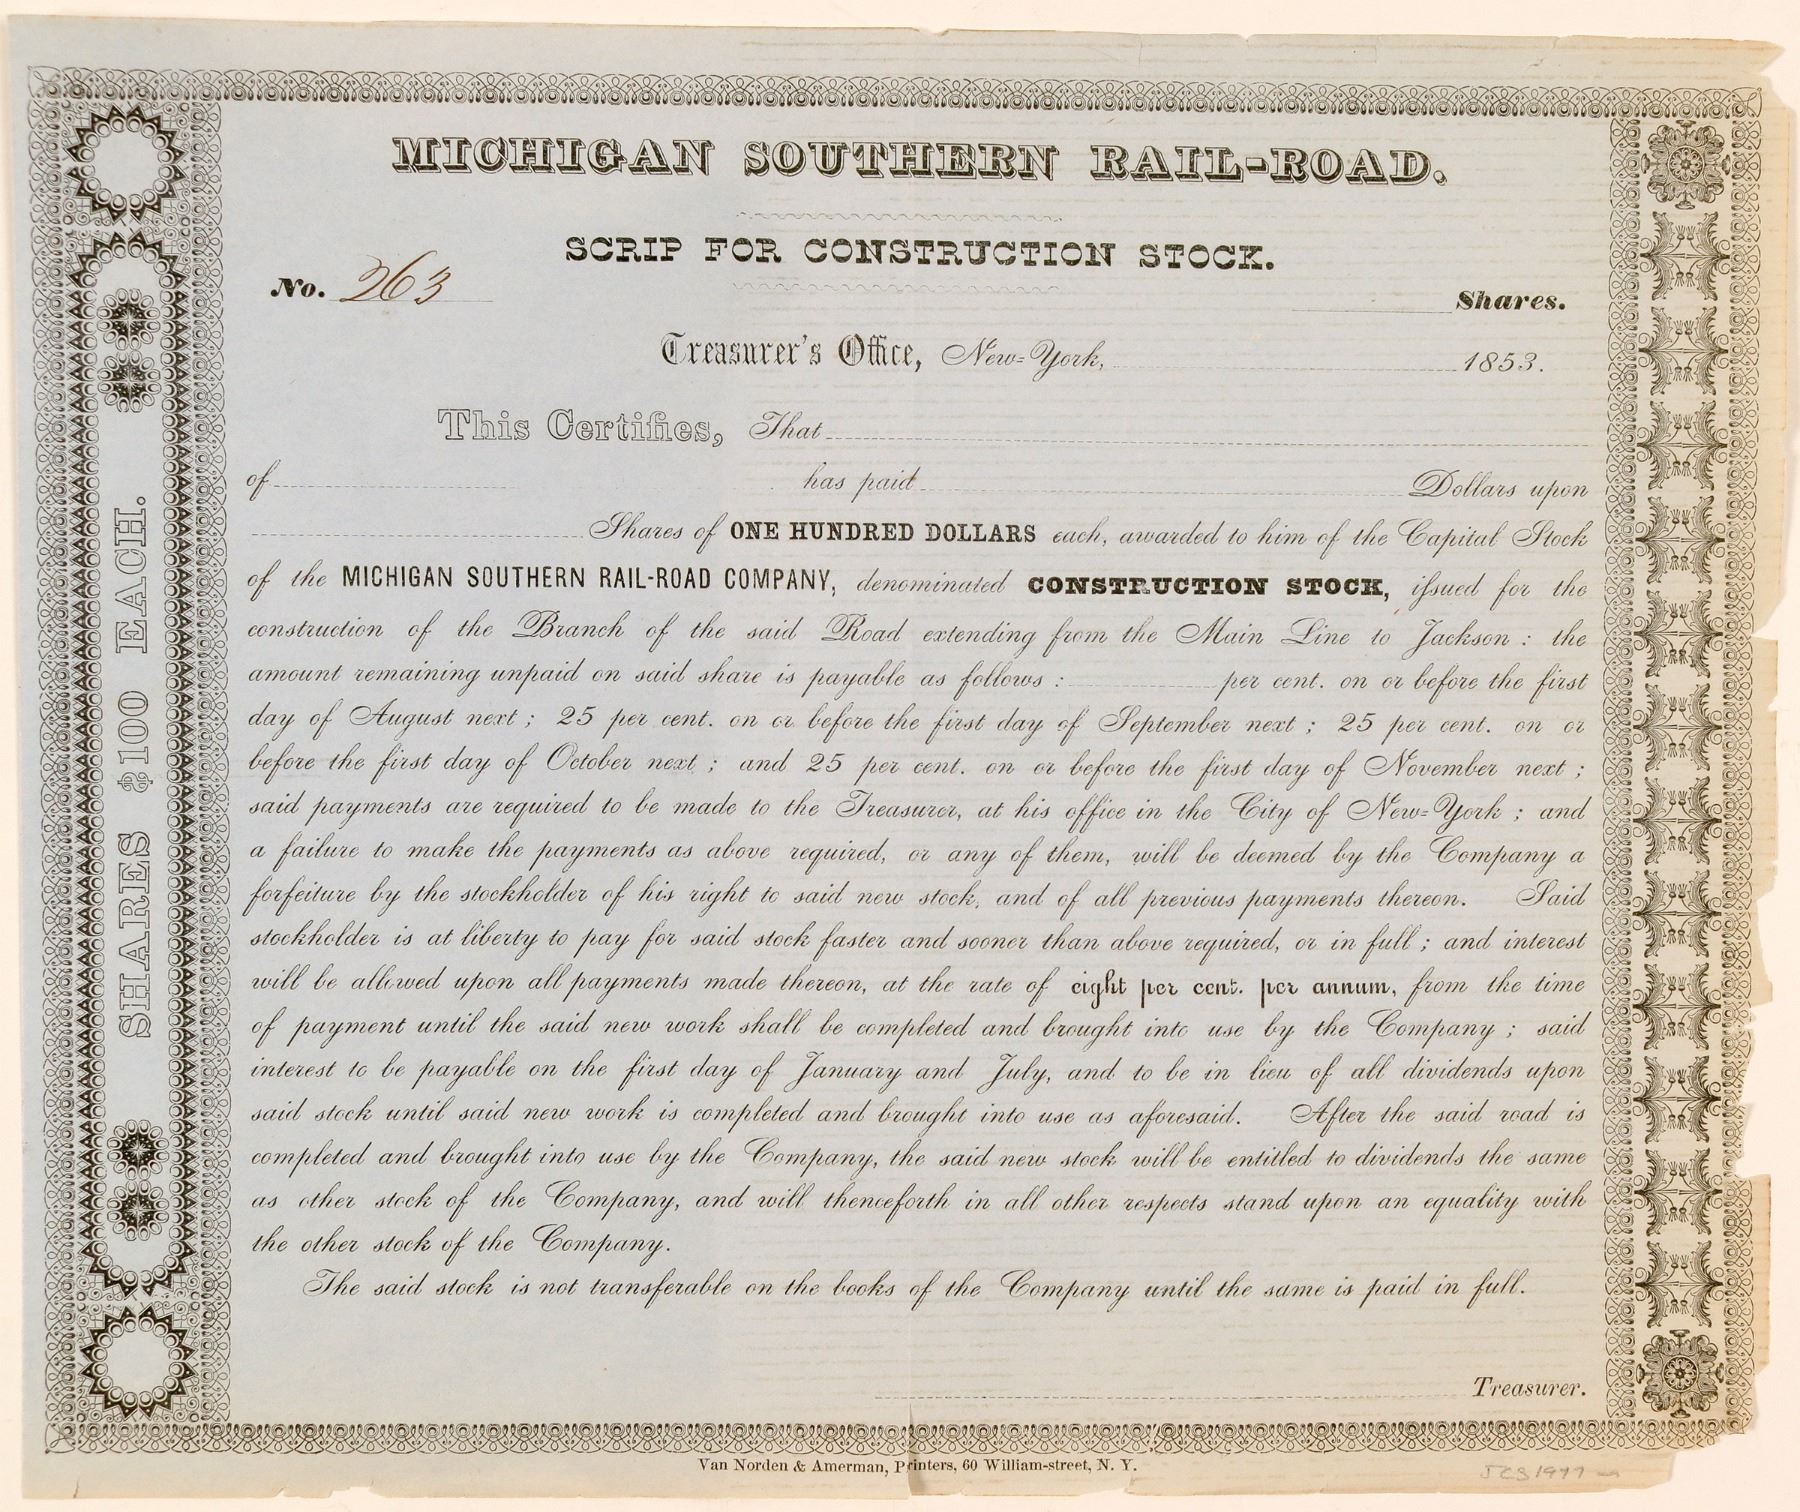 MICHIGAN SOUTHERN RAIL-ROAD.
SCRIP FOR CONSTRUCTION STOCK.
No. 263
Shares.
Treasurer's Office, New-York, 1853.
This Certifies, That
of has paid Dollars upon
Shares of ONE HUNDRED DOLLARS each, awarded to him of the Capital Stock
of the MICHIGAN SOUTHERN RAIL-ROAD COMPANY, denominated CONSTRUCTION STOCK, issued for the
construction of the Branch of the said Road extending from the Main Line to Jackson : the
amount remaining unpaid on said share is payable as follows : per cent. on or before the first
day of August next ; 25 per cent. on or before the first day of September next ; 25 per cent. on or
before the first day of October next ; and 25 per cent. on or before the first day of November next ;
said payments are required to be made to the Treasurer, at his office in the City of New-York ; and
a failure to make the payments as above required, or any of them, will be deemed by the Company a
forfeiture by the stockholder of his right to said new stock, and of all previous payments thereon. Said
stockholder is at liberty to pay for said stock faster and sooner than above required, or in full ; and interest
will be allowed upon all payments made thereon, at the rate of eight per cent. per annum, from the time
of payment until the said new work shall be completed and brought into use by the Company ; said
interest to be payable on the first day of January and July, and to be in lieu of all dividends upon
said stock until said new work is completed and brought into use as aforesaid. After the said road is
completed and brought into use by the Company, the said new stock will be entitled to dividends the same
as other stock of the Company, and will thenceforth in all other respects stand upon an equality with
the other stock of the Company.
The said stock is not transferable on the books of the Company until the same is paid in full.
Treasurer.
Van Norden & Amerman, Printers, 60 William-street, N. Y.
SHARES $100 EACH.